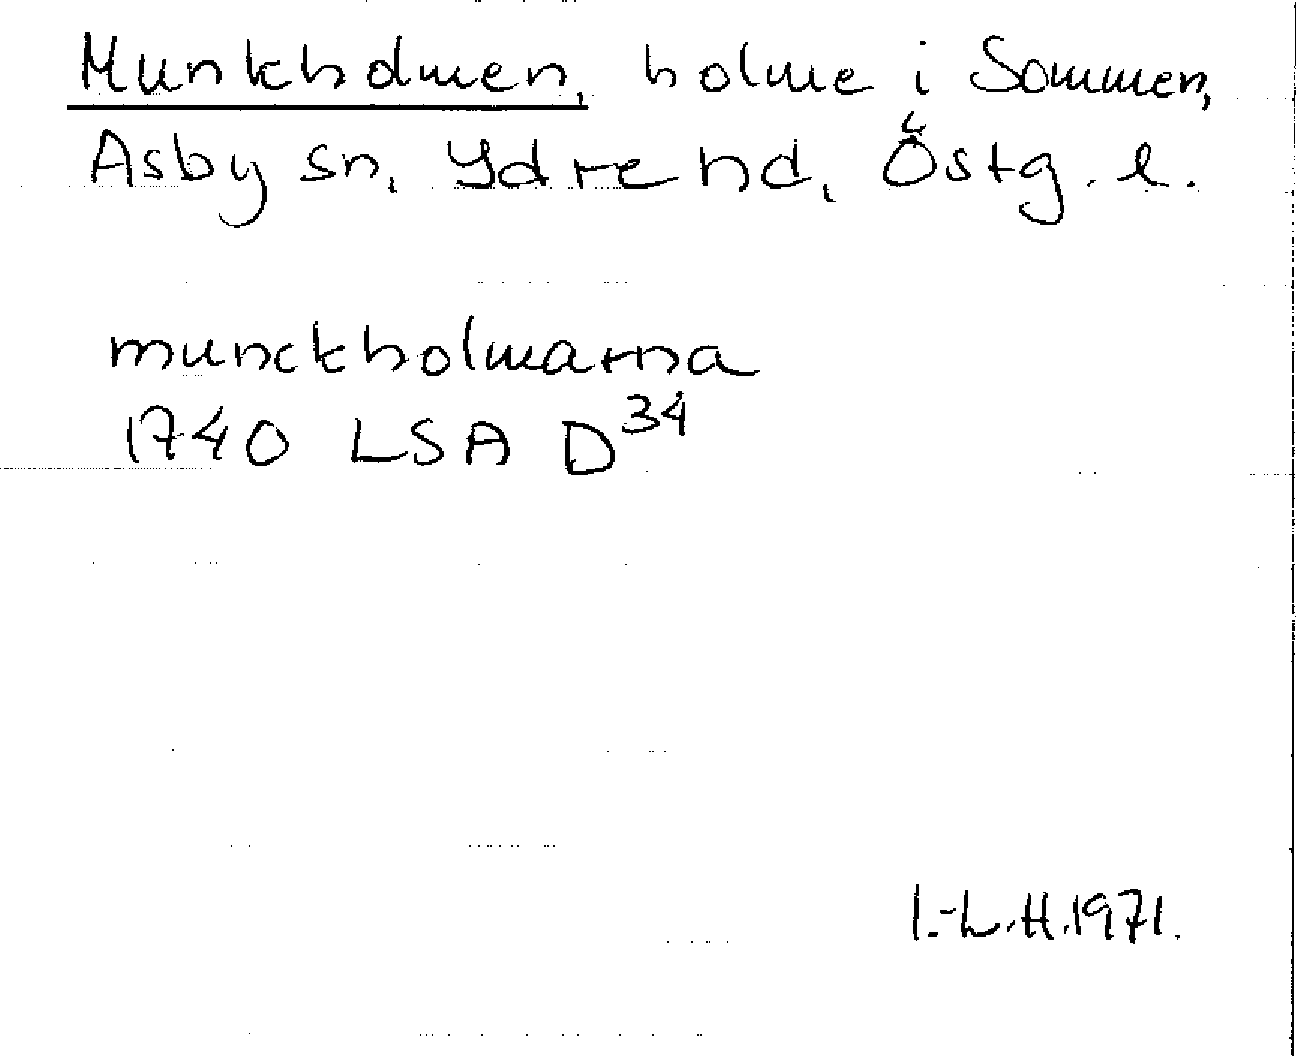 Munkholmen, holme i Sommen,
Asby sn, Ydre hd, Östg. l.
munckholmarna
1740 LSA D34
I.-L.H.1971.